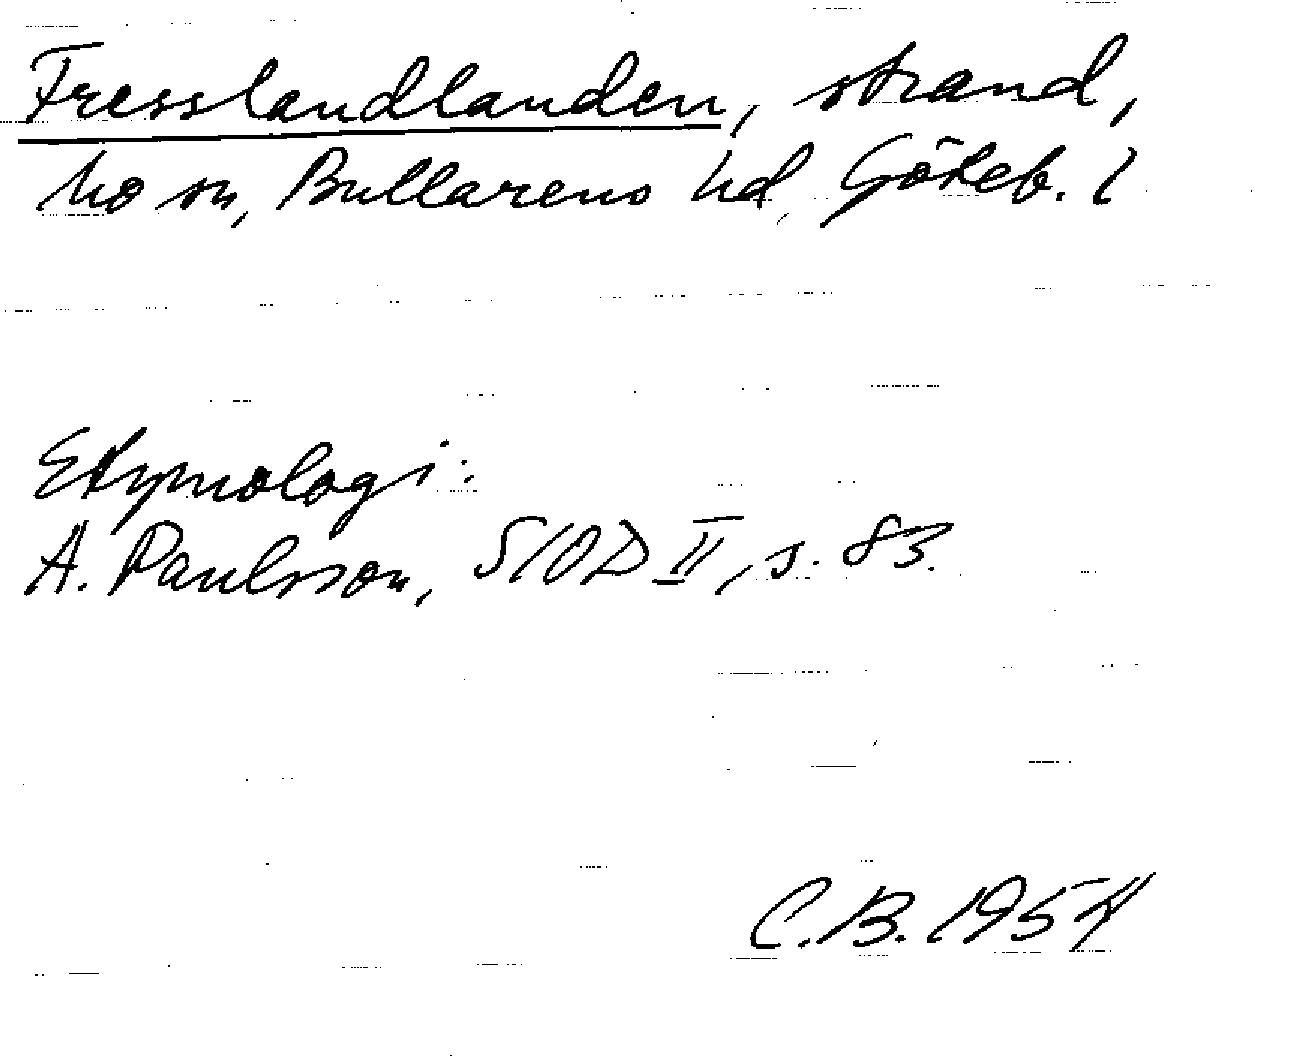 Fresslandlanden, strand,
Mo sn, Bullarens hd, Göteb. l
Etymologi:
A. Paulsson, SIOD II, s. 83.
C.B. 1954